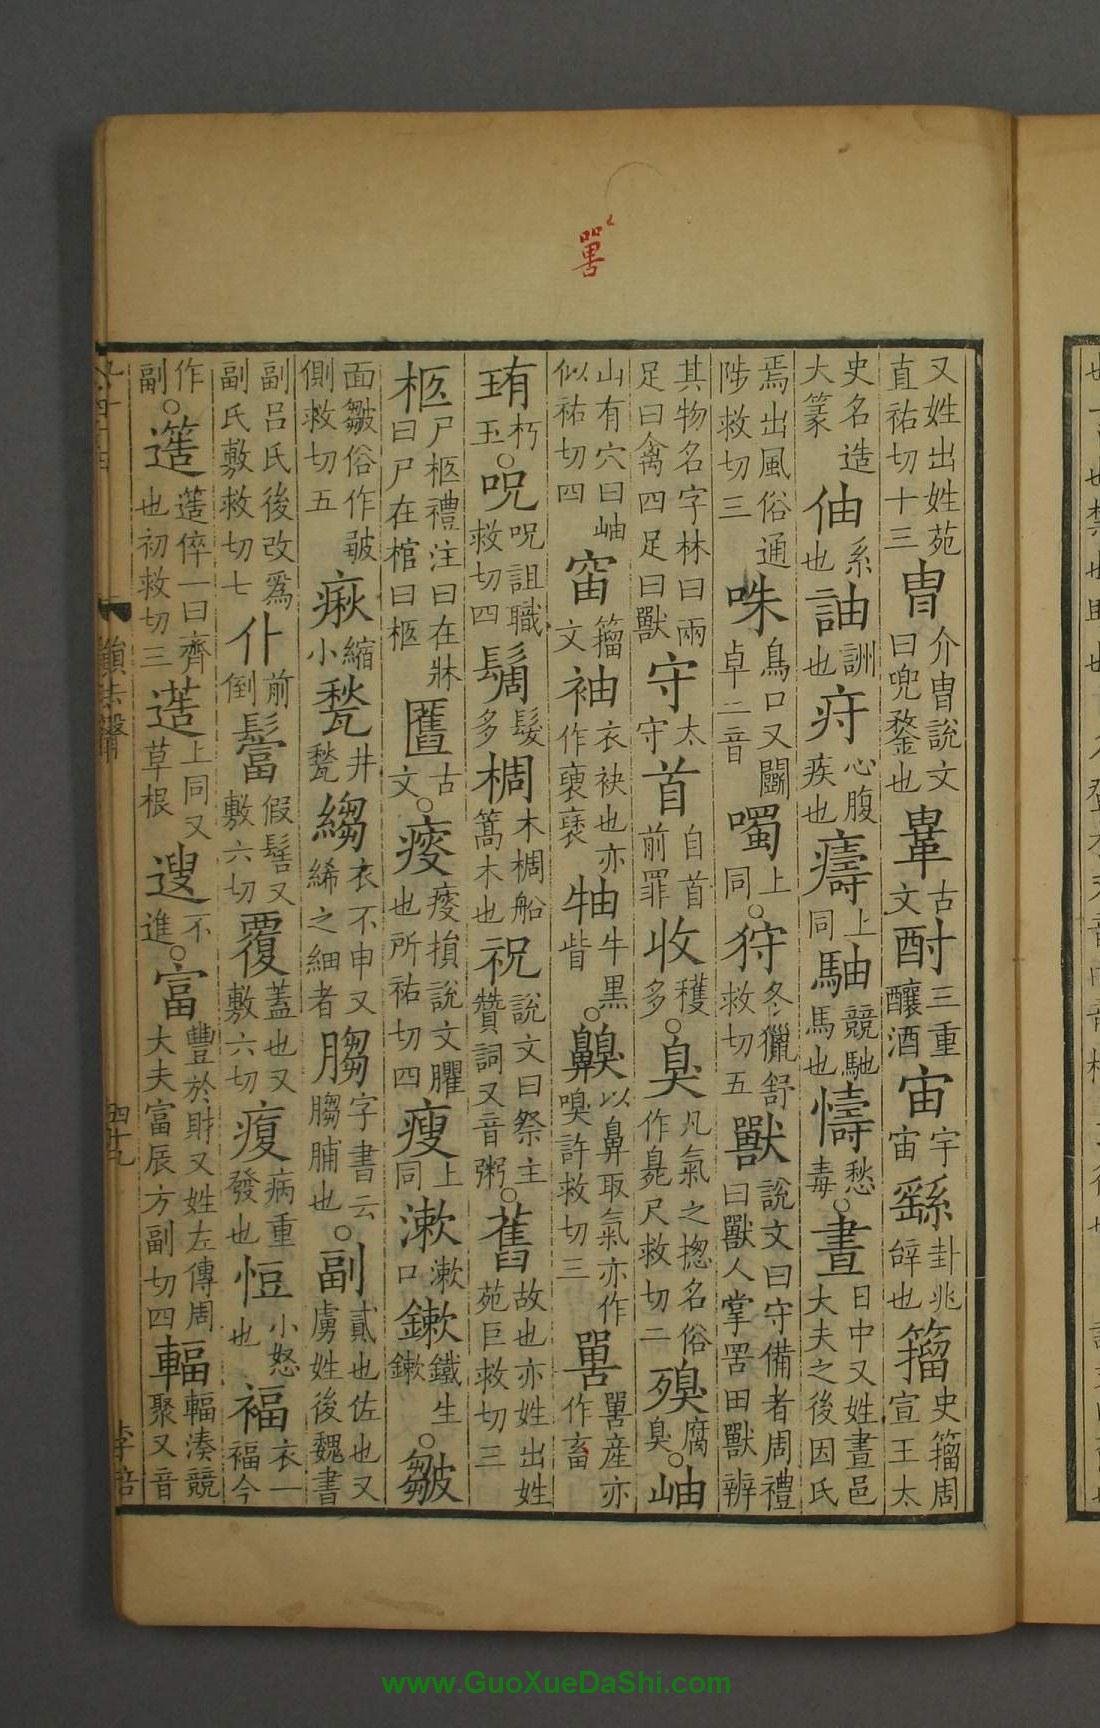 嘼
又姓出姓苑直祐切十三胄介胄說文曰兜鍪也䩜古文酎三重釀酒宙宇宙繇卦兆辝也籒史籒周宣王太
史名造大篆伷系也詶詶也疛心腹疾也㿒上同駎競馳馬也懤愁毒○晝日中又姓晝邑大夫之後因氏
焉出風俗通陟救切三咮鳥口又鬭卓二音噣上同○狩冬獵舒救切五獸說文曰守備者周禮曰獸人掌罟田獸辨
其物名字林曰兩足曰禽四足曰獸守太守首自首前罪收穫多○臭凡氣之揔名俗作臰尺救切二殠腐臭○岫
山有穴曰岫似祐切四宙籒文袖衣袂也亦作褏褎㹨牛黑眥○齅以鼻取氣亦作嗅許救切三嘼嘼產亦作畜
珛朽玉○呪呪詛職救切四䯾髮多椆木椆船篙木也祝說文曰祭主贊詞又音粥○舊故也亦姓出姓苑巨救切三
柩尸柩禮注曰在牀曰尸在棺曰柩匶古文○瘦瘦損說文臞也所祐切四瘦上同漱漱口鏉鐵生鏉○皺
面皺俗作皷側救切五瘷縮小甃井甃縐衣不申又絺之細者㑳字書云㑳脯也○副貳也佐也又虜姓後魏書
副呂氏後改爲副氏敷救切七仆前倒䯽假髻又敷六切覆蓋也又敷六切㾺病重發也㤱小怒也福衣一福今
作副○簉簉倅一曰齊也初救切三蓲上同又草根䢟不進○富豐於財又姓左傳周大夫富辰方副切四輻輻湊競聚又音
韻去聲
四十九
李倍
www.GuoXueDaShi.com